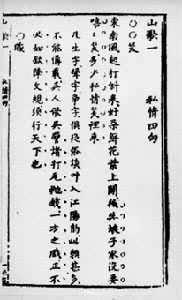 山歌一
私情四句
○○笑
東南風起打斜來好朵鮮花葉上開後生娘子家沒要
嘻嘻笑多少私情笑裡來
凡生字聲字爭字俱從俗談叶入江陽韻此類甚多
不能備載吳人歌吳譬諸打瓦抛錢一方之戲正不
必如欽降文規須行天下也
○○睃